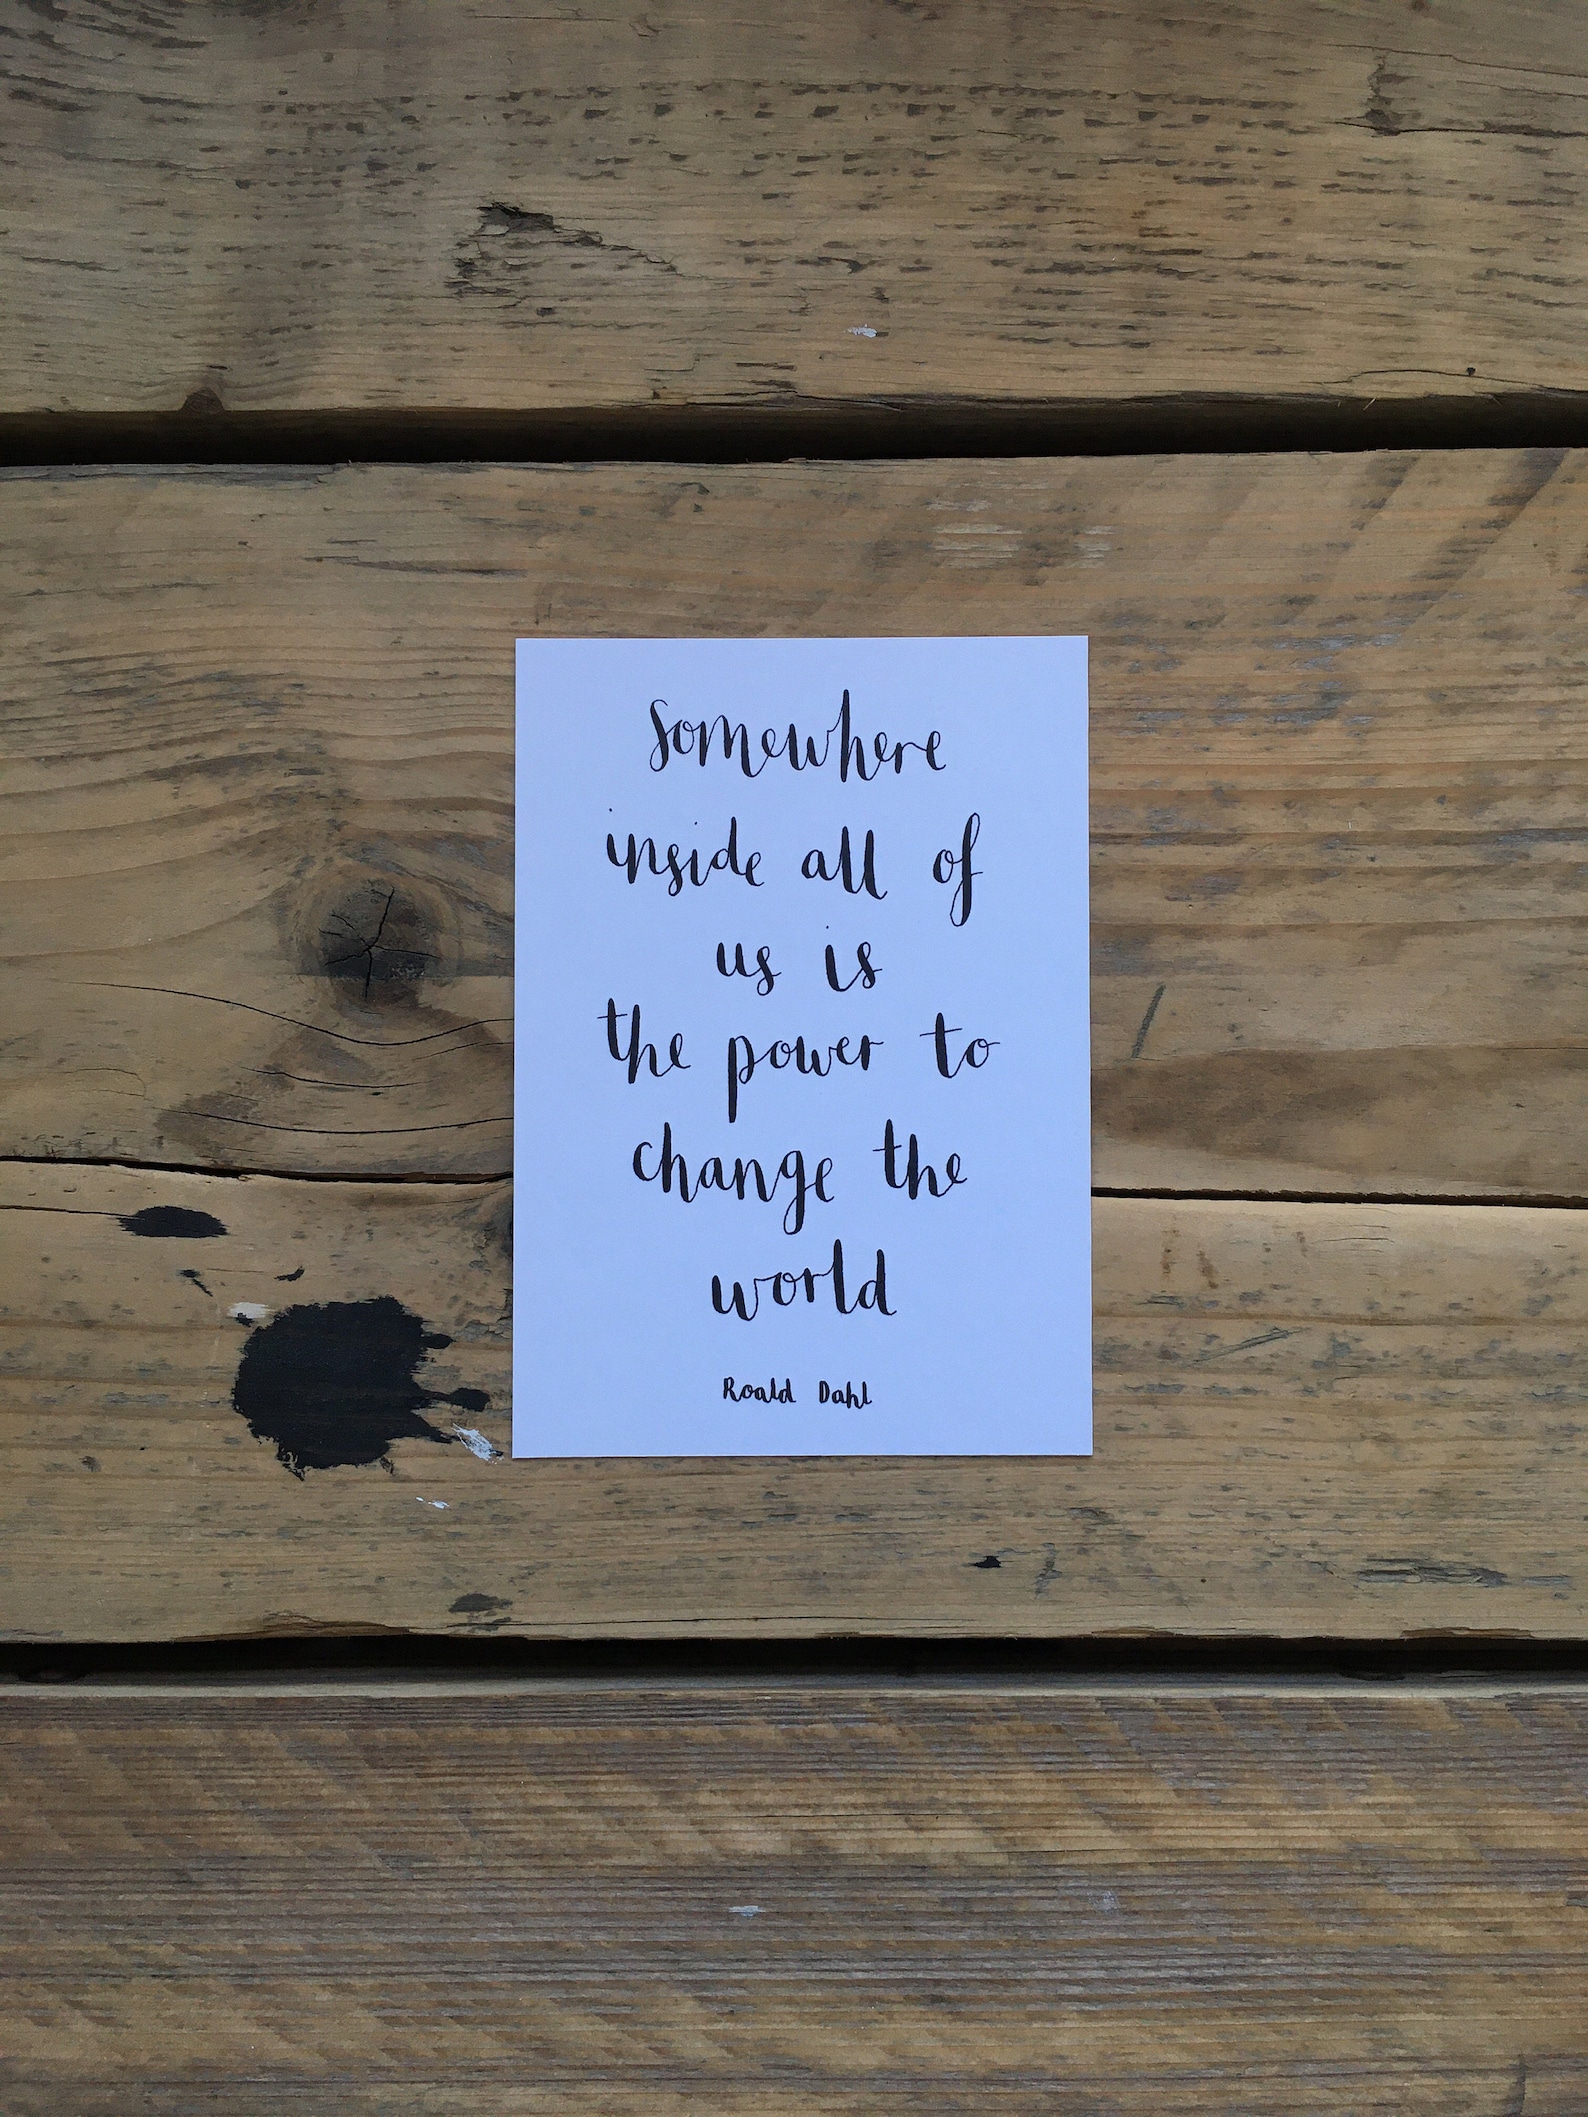 Somewhere
inside all of
us is
the power to
change the
world
Roald Dahl